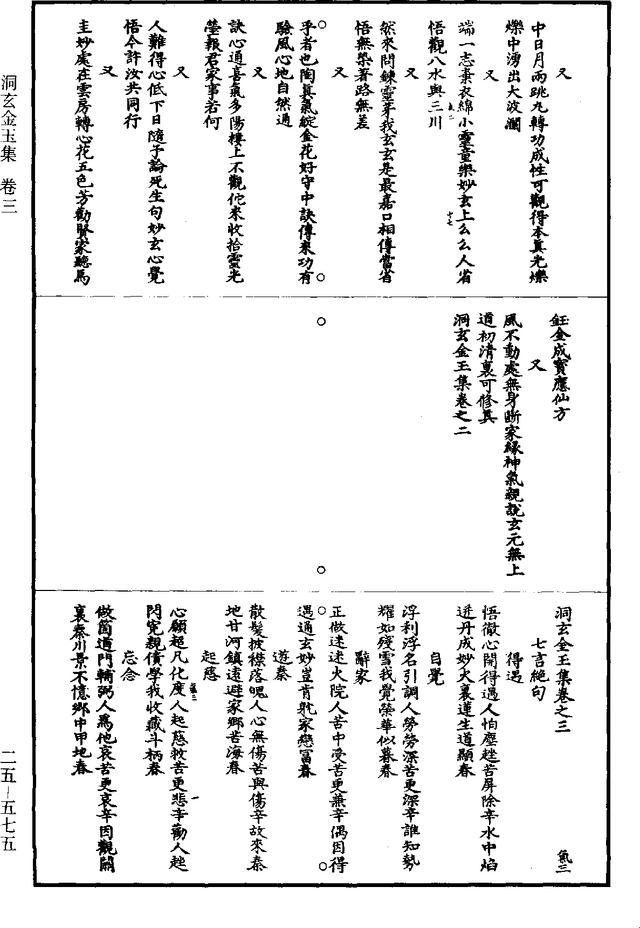 洞玄金玉集 卷三
二五—五七五
又
中日月兩跳丸轉功成性可觀得本真光爍
爍中湧出大波瀾
又
端一志棄衣綿小靈童樂妙玄上么么人省
悟觀八水與三川
又
然來問鍊靈芽我玄玄是最嘉口相傳當省
悟無染著路無差
又
乎者也陶真氣綻金花好守中訣傳來功有
驗風心地自然通
又
訣心通喜氣多陽樓上不觀他來收拾靈光
瑩報君家事若何
又
人難得心低下日隨予論死生句妙玄心覺
悟今許汝共同行
又
圭妙處在雲房轉心花五色芳勸賢家聽馬
鈺金成寶應仙方
又
風不動處無身斷家緣神氣親說玄元無上
道初清裏可修真
洞玄金玉集卷之二
洞玄金玉集卷之三 氣三
七言絕句
得遇
悟徹心開得遇人怕塵趓苦屏除辛水中焰
迸丹成妙火裏蓮生道顯春
自覺
浮利浮名引調人勞勞深苦更深辛誰知勢
耀如殘雪我覺榮華似暮春
辭家
正做迷迷火院人苦中受苦更兼辛偶因得
遇通玄妙豈肯躭家戀富春
遊秦
散髮披襟落魄人心無傷苦與傷辛故來秦
地甘河鎮遠避家鄉苦海春
起慈
心願超凡化度人起慈救苦更悲辛勸人趓
閃冤親債學我收藏斗柄春
忘念
做箇道門輔弼人為他哀苦更哀辛因觀關
裏秦川景不憶鄉中甲地春